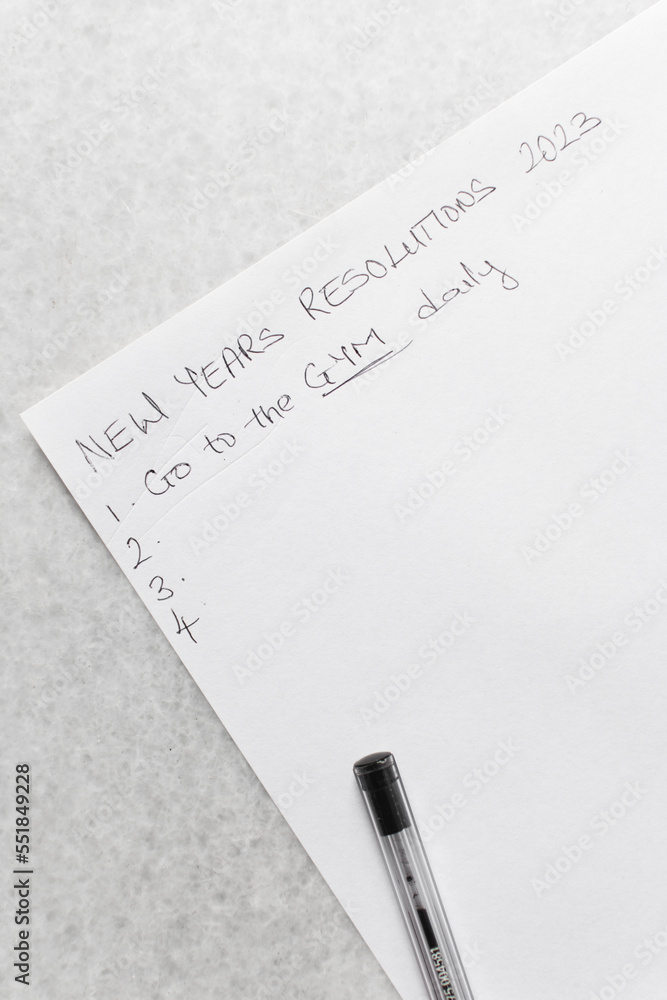 NEW YEARS RESOLUTIONS 2023
1. Go to the GYM daily
2.
3.
4.
Adobe Stock | #551849228